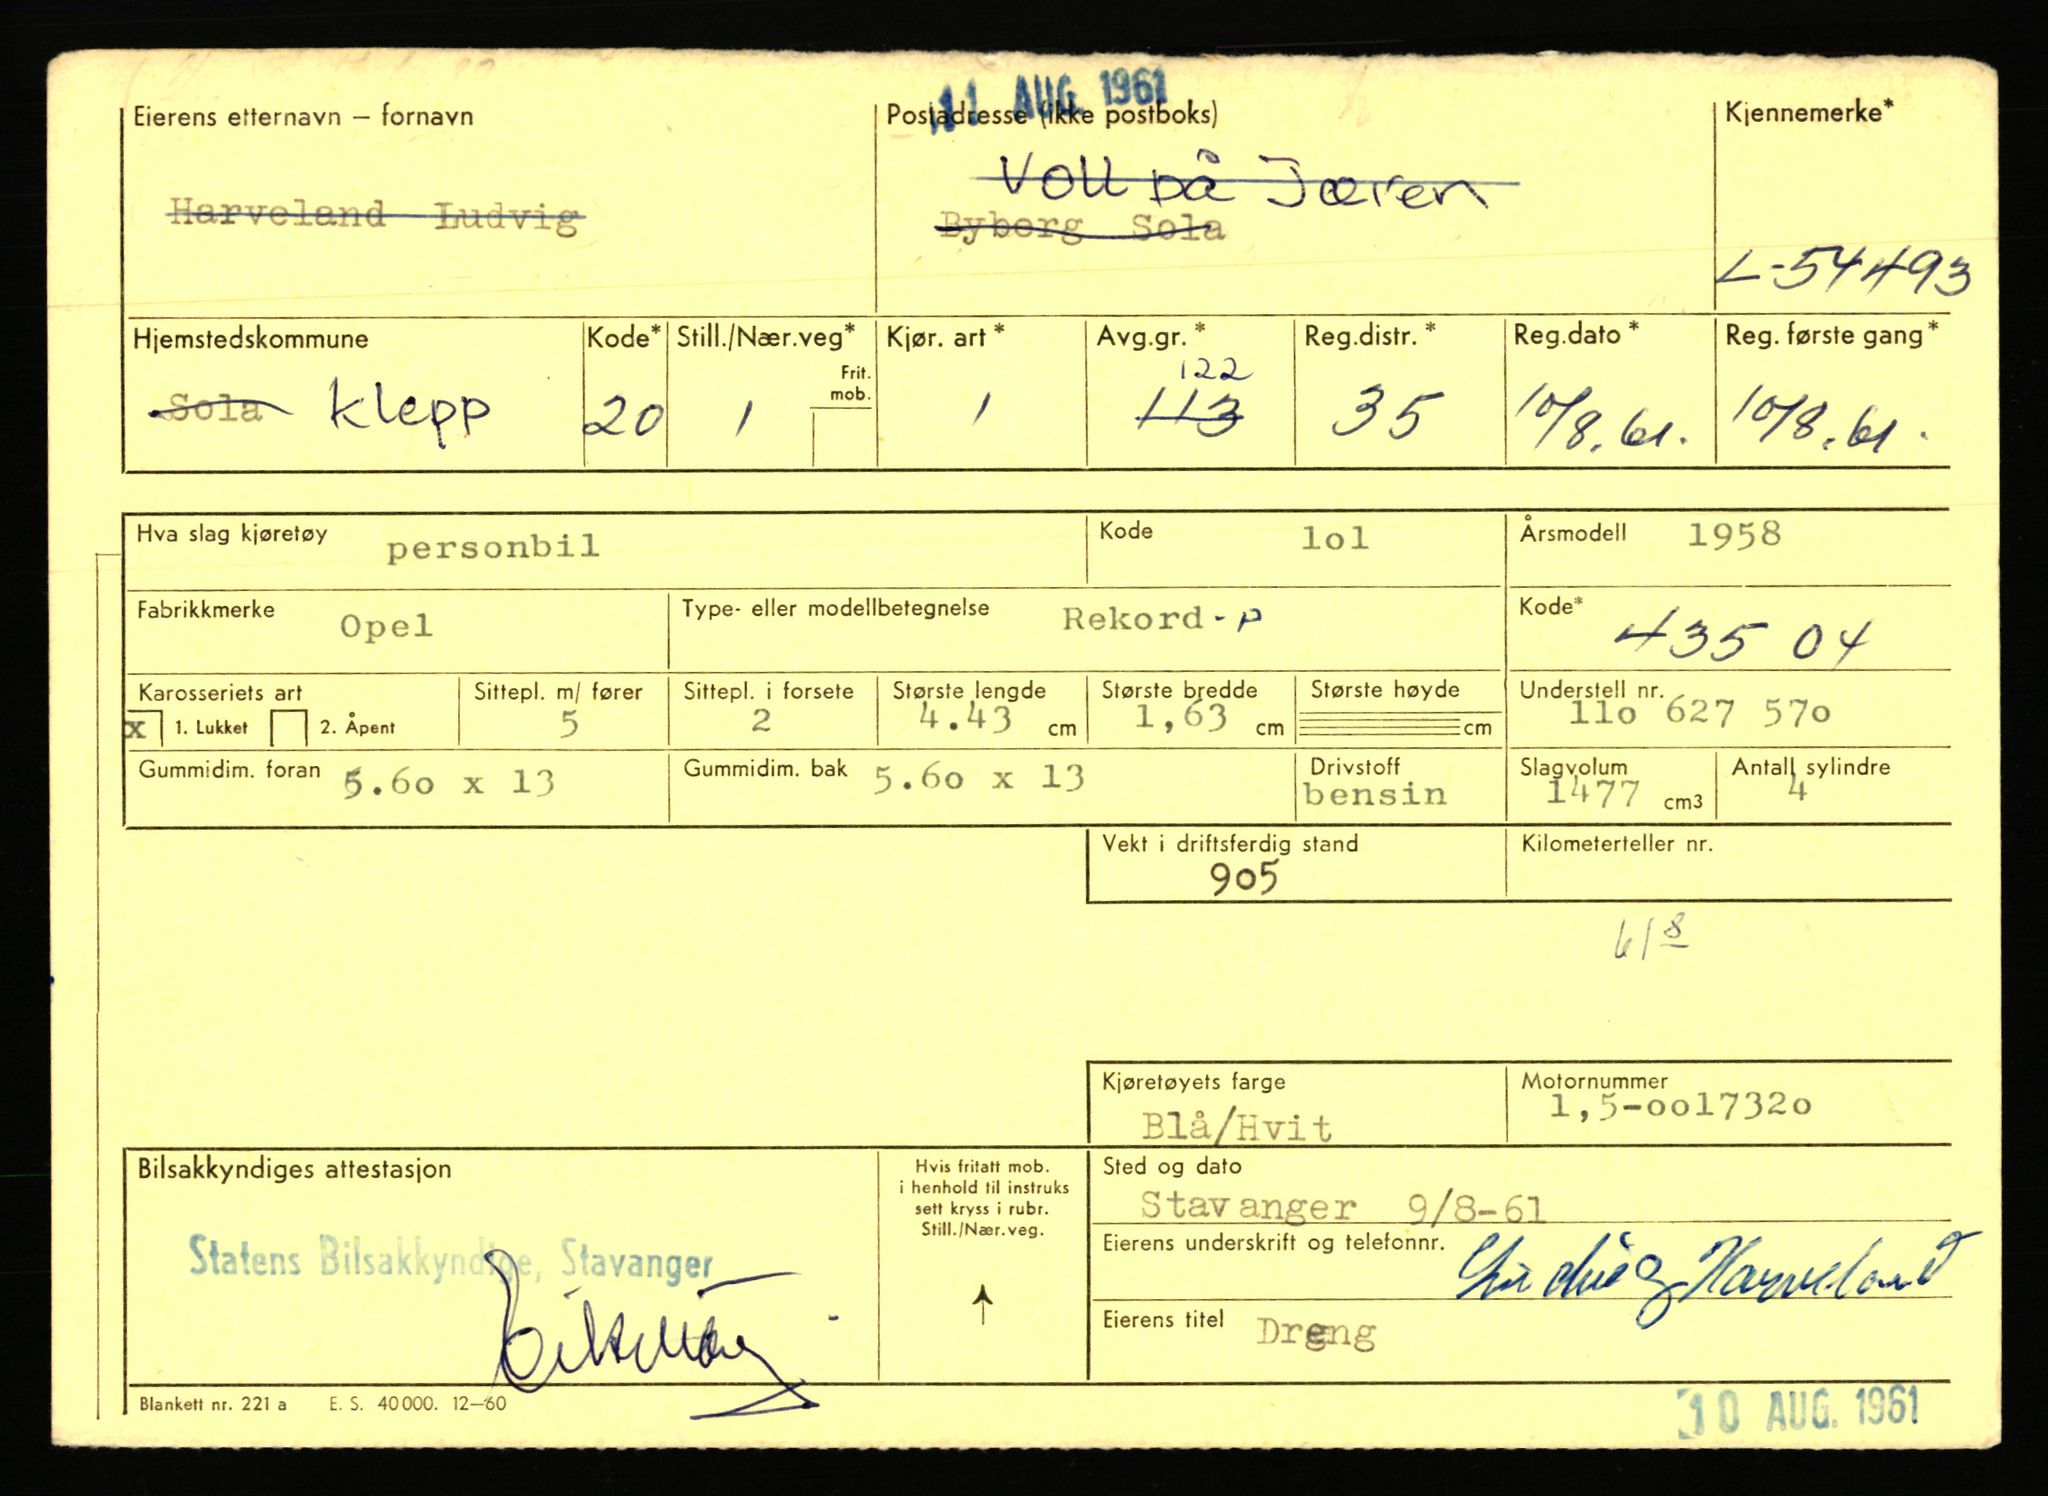 11 AUG. 1961
Eierens etternavn – fornavn
Postadresse (ikke postboks)
Kjennemerke*
Voll på Jæren
Harveland Ludvig
Byberg Sola
L-54493
Hjemstedskommune
Kode*
Still./Nær.veg*
Kjør. art*
Avg.gr.*
Reg.distr.*
Reg.dato*
Reg. første gang*
Frit. mob.
122
Sola Klepp
20
1
1
113
35
10/8.61.
10/8.61.
Hva slag kjøretøy personbil
Kode lol
Årsmodell 1958
Fabrikkmerke Opel
Type- eller modellbetegnelse Rekord-P
Kode* 435 04
Karosseriets art
x 1. Lukket 2. Åpent
Sittepl. m/ fører
5
Sittepl. i forsete
2
Største lengde
4.43 cm
Største bredde
1,63 cm
Største høyde
cm
Understell nr.
llo 627 57o
Gummidim. foran 5.6o x 13
Gummidim. bak 5.6o x 13
Drivstoff
bensin
Slagvolum
1477 cm3
Antall sylindre
4
Vekt i driftsferdig stand
905
Kilometerteller nr.
61 8
Kjøretøyets farge
Blå/Hvit
Motornummer
1,5-oo1732o
Bilsakkyndiges attestasjon
Statens Bilsakkyndige, Stavanger
Hvis fritatt mob.
i henhold til instruks
sett kryss i rubr.
Still./Nær.veg.
Sted og dato
Stavanger 9/8-61
Eierens underskrift og telefonnr. Ludvig Harveland
Eierens titel Dreng
Blankett nr. 221 a E. S. 40 000. 12–60
10 AUG. 1961